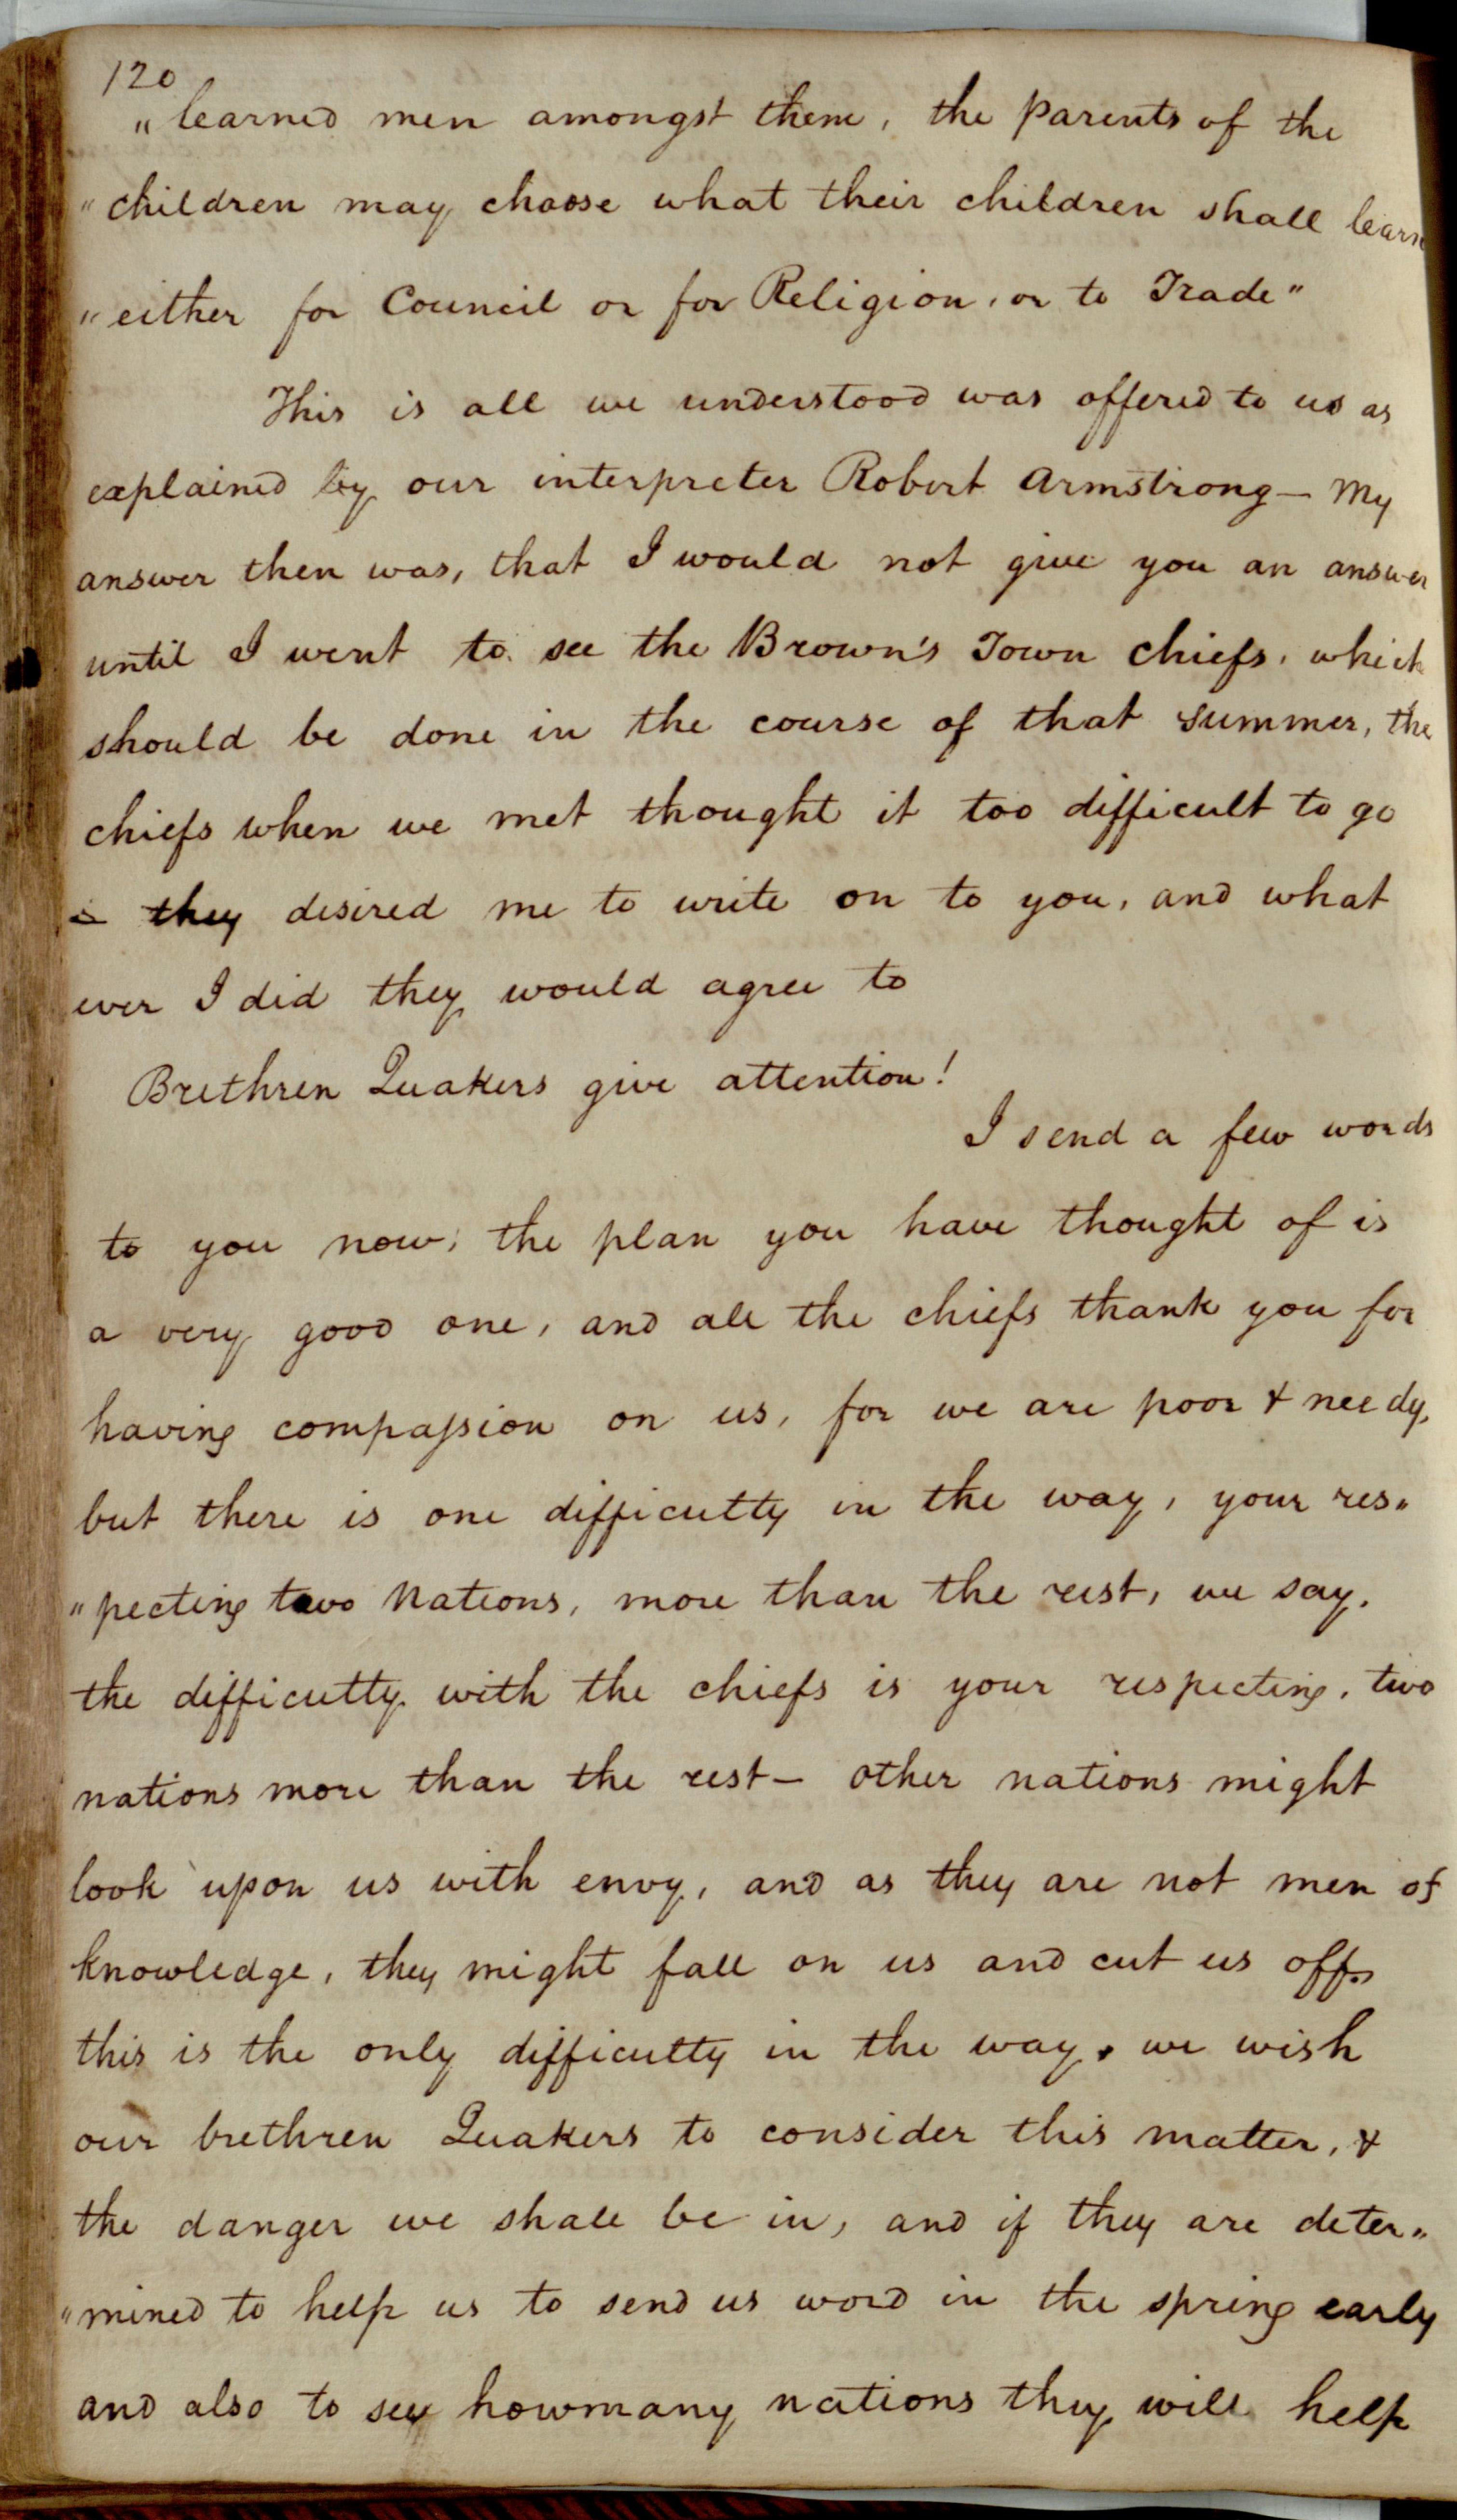 120
"learned men amongst them, the parents of the
"children may choose what their children shall learn
"either for Council or for Religion, or to Trade"
This is all we understood was offered to us as
explained by our interpreter Robert Armstrong— My
answer then was, that I would not give you an answer
until I went to see the Brown's Town chiefs, which
should be done in the course of that summer, the
chiefs when we met thought it too difficult to go
& they desired me to write on to you, and what
ever I did they would agree to
Brethren Quakers give attention!
I send a few words
to you now; the plan you have thought of is
a very good one, and all the chiefs thank you for
having compassion on us, for we are poor & needy,
but there is one difficulty in the way, your res"
"pecting two Nations, more than the rest, we say.
the difficulty with the chiefs is your respecting, two
nations more than the rest— other nations might
look upon us with envy, and as they are not men of
knowledge, they might fall on us and cut us off,
this is the only difficulty in the way. we wish
our brethren Quakers to consider this matter, &
the danger we shall be in, and if they are deter"
"mined to help us to send us word in the spring early
and also to see howmany nations they will help